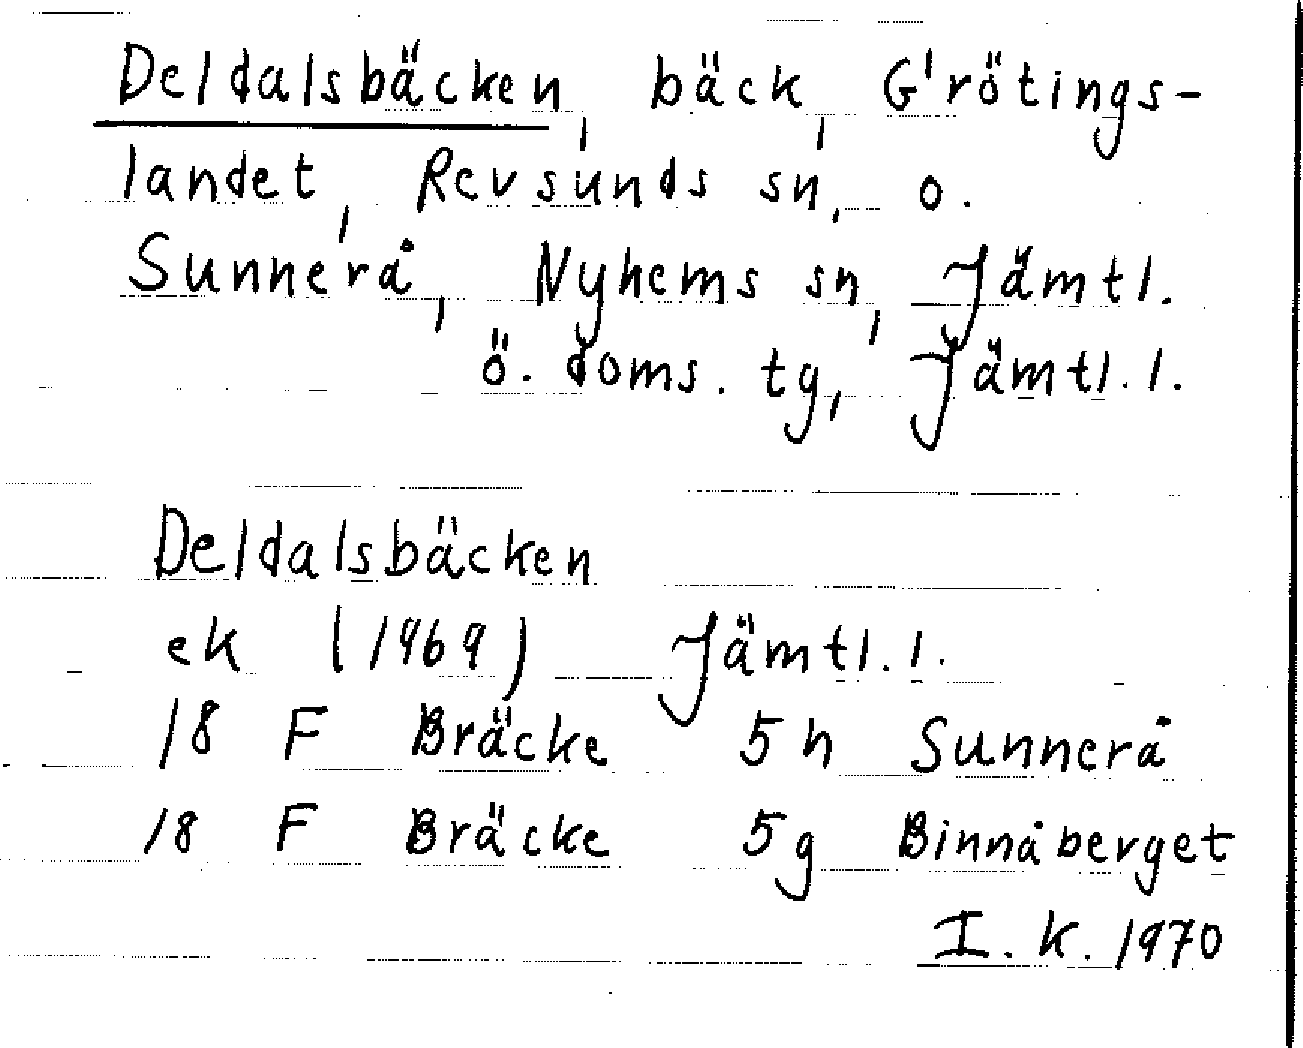 Deldalsbäcken, bäck, Grötings-
landet, Revsunds sn, o.
Sunnerå, Nyhems sn, Jämtl.
ö. doms. tg, Jämtl. l.
Deldalsbäcken
ek (1969) Jämtl. l.
18 F Bräcke 5h Sunnerå
18 F Bräcke 5g Binnåberget
I. K. 1970